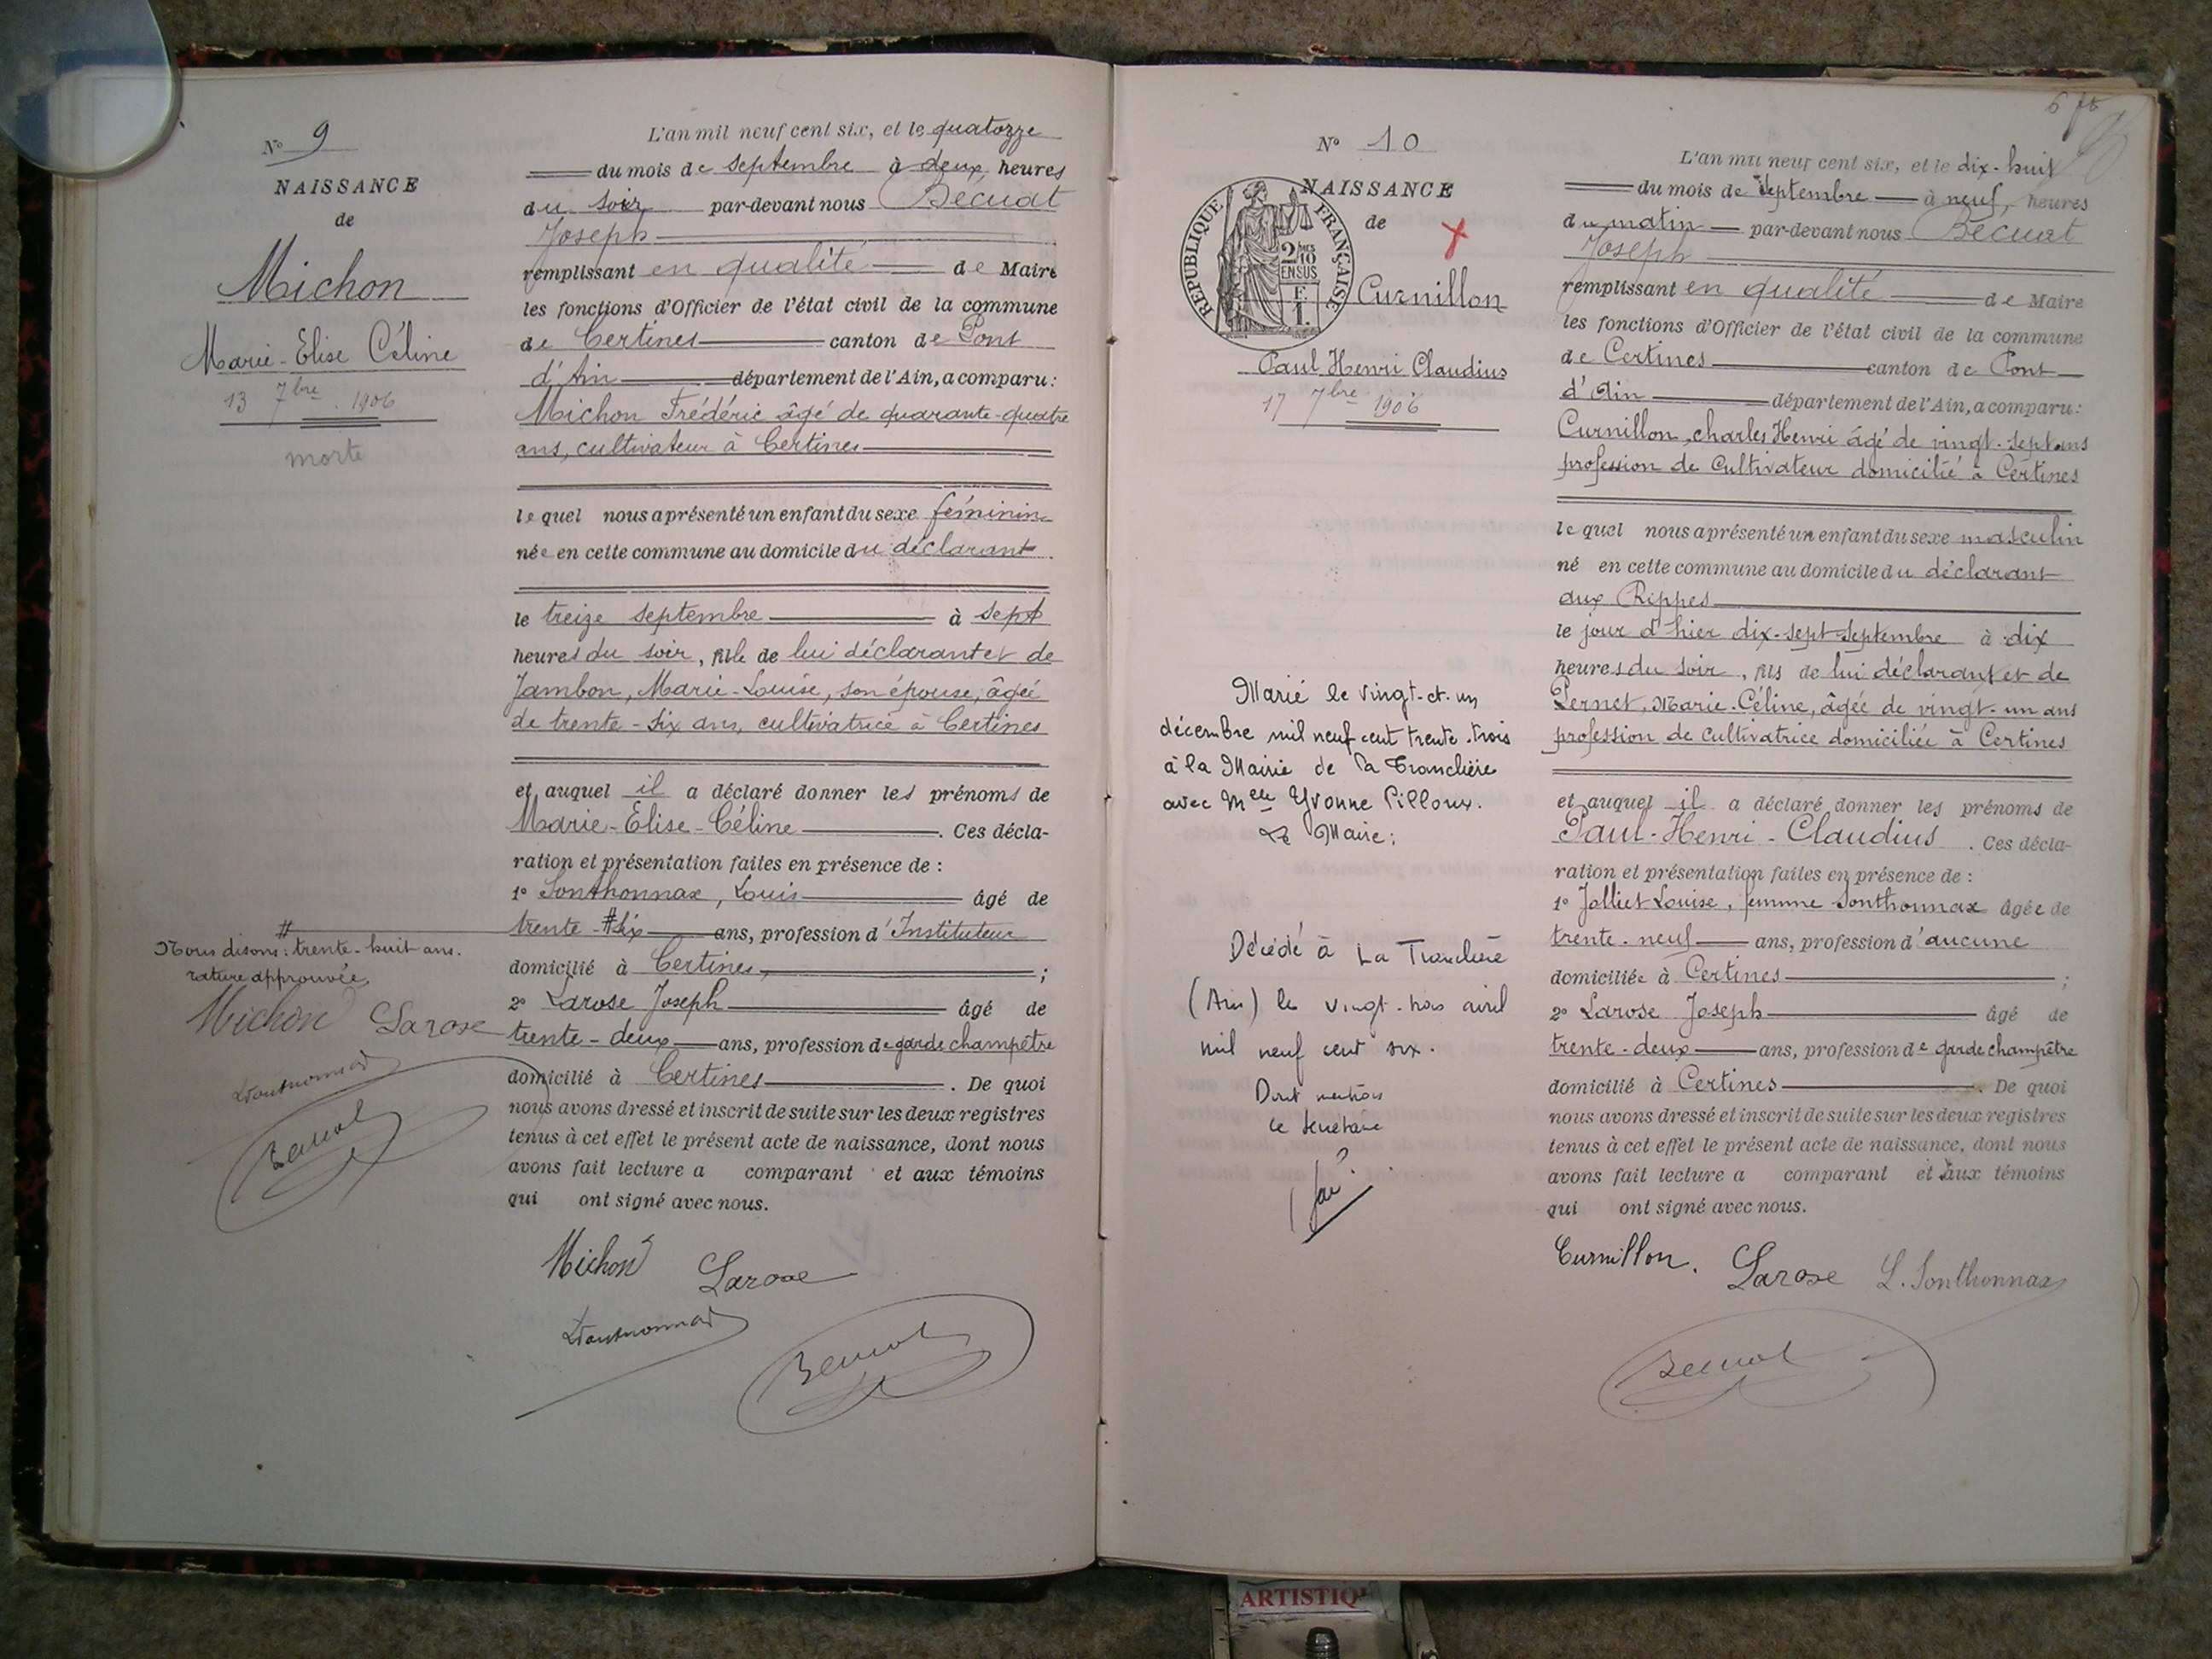 N° 9
NAISSANCE
de
Michon
Marie-Elise Céline
13 7bre 1906
morte
# Nous disons : trente-huit ans.
rature approuvée
Michon Larose
L'an mil neuf cent six, et le quatorze
du mois de septembre à deux heures
du soir par-devant nous Bécuat
Joseph
remplissant en qualité de Maire
les fonctions d'Officier de l'état civil de la commune
de Certines canton de Pont
d'Ain département de l'Ain, a comparu :
Michon Frédéric âgé de quarante-quatre
ans, cultivateur à Certines
lequel nous a présenté un enfant du sexe féminin
née en cette commune au domicile du déclarant
le treize septembre à sept
heures du soir, fille de lui déclarant et de
Jambon, Marie-Louise, son épouse, âgée
de trente-six ans, cultivatrice à Certines
et auquel il a déclaré donner les prénoms de
Marie-Elise-Céline . Ces décla-
ration et présentation faites en présence de :
1° Sonthonnax, Louis âgé de
trente # six ans, profession d'Instituteur
domicilié à Certines, ;
2° Larose Joseph âgé de
trente-deux ans, profession de garde champêtre
domicilié à Certines . De quoi
nous avons dressé et inscrit de suite sur les deux registres
tenus à cet effet le présent acte de naissance, dont nous
avons fait lecture a comparant et aux témoins
qui ont signé avec nous.
Michon Larose
LSonthonnax
Bécuat
6 ft
N° 10
NAISSANCE
de
RÉPUBLIQUE FRANÇAISE
2/10 EN SUS
F. 1.
Curnillon
Paul Henri Claudius
17 7bre 1906
Marié le vingt-et-un
décembre mil neuf cent trente-trois
à la Mairie de la Tranclière
avec Melle Yvonne Pilloux.
Le Maire :
Décédé à La Tranclière
(Ain) le vingt-trois avril
mil neuf cent six.
Dont mention
Le secrétaire
L'an mil neuf cent six, et le dix-huit
du mois de septembre à neuf, heures
du matin par-devant nous Bécuat
Joseph
remplissant en qualité de Maire
les fonctions d'Officier de l'état civil de la commune
de Certines canton de Pont
d'Ain département de l'Ain, a comparu :
Curnillon, charles Henri âgé de vingt-sept ans
profession de cultivateur domicilié à Certines
lequel nous a présenté un enfant du sexe masculin
né en cette commune au domicile du déclarant
aux Rippes
le jour d'hier dix-sept septembre à dix
heures du soir, fils de lui déclarant et de
Pernet, Marie-Céline, âgée de vingt-un ans
profession de cultivatrice domiciliée à Certines
et auquel il a déclaré donner les prénoms de
Paul-Henri-Claudius . Ces décla-
ration et présentation faites en présence de :
1° Jolliet Louise, femme Sonthonnax âgée de
trente-neuf ans, profession d'aucune
domiciliée à Certines ;
2° Larose Joseph âgé de
trente-deux ans, profession de garde champêtre
domicilié à Certines . De quoi
nous avons dressé et inscrit de suite sur les deux registres
tenus à cet effet le présent acte de naissance, dont nous
avons fait lecture a comparant et aux témoins
qui ont signé avec nous.
Curnillon. Larose L. Sonthonnax
Bécuat
ARTISTIQ